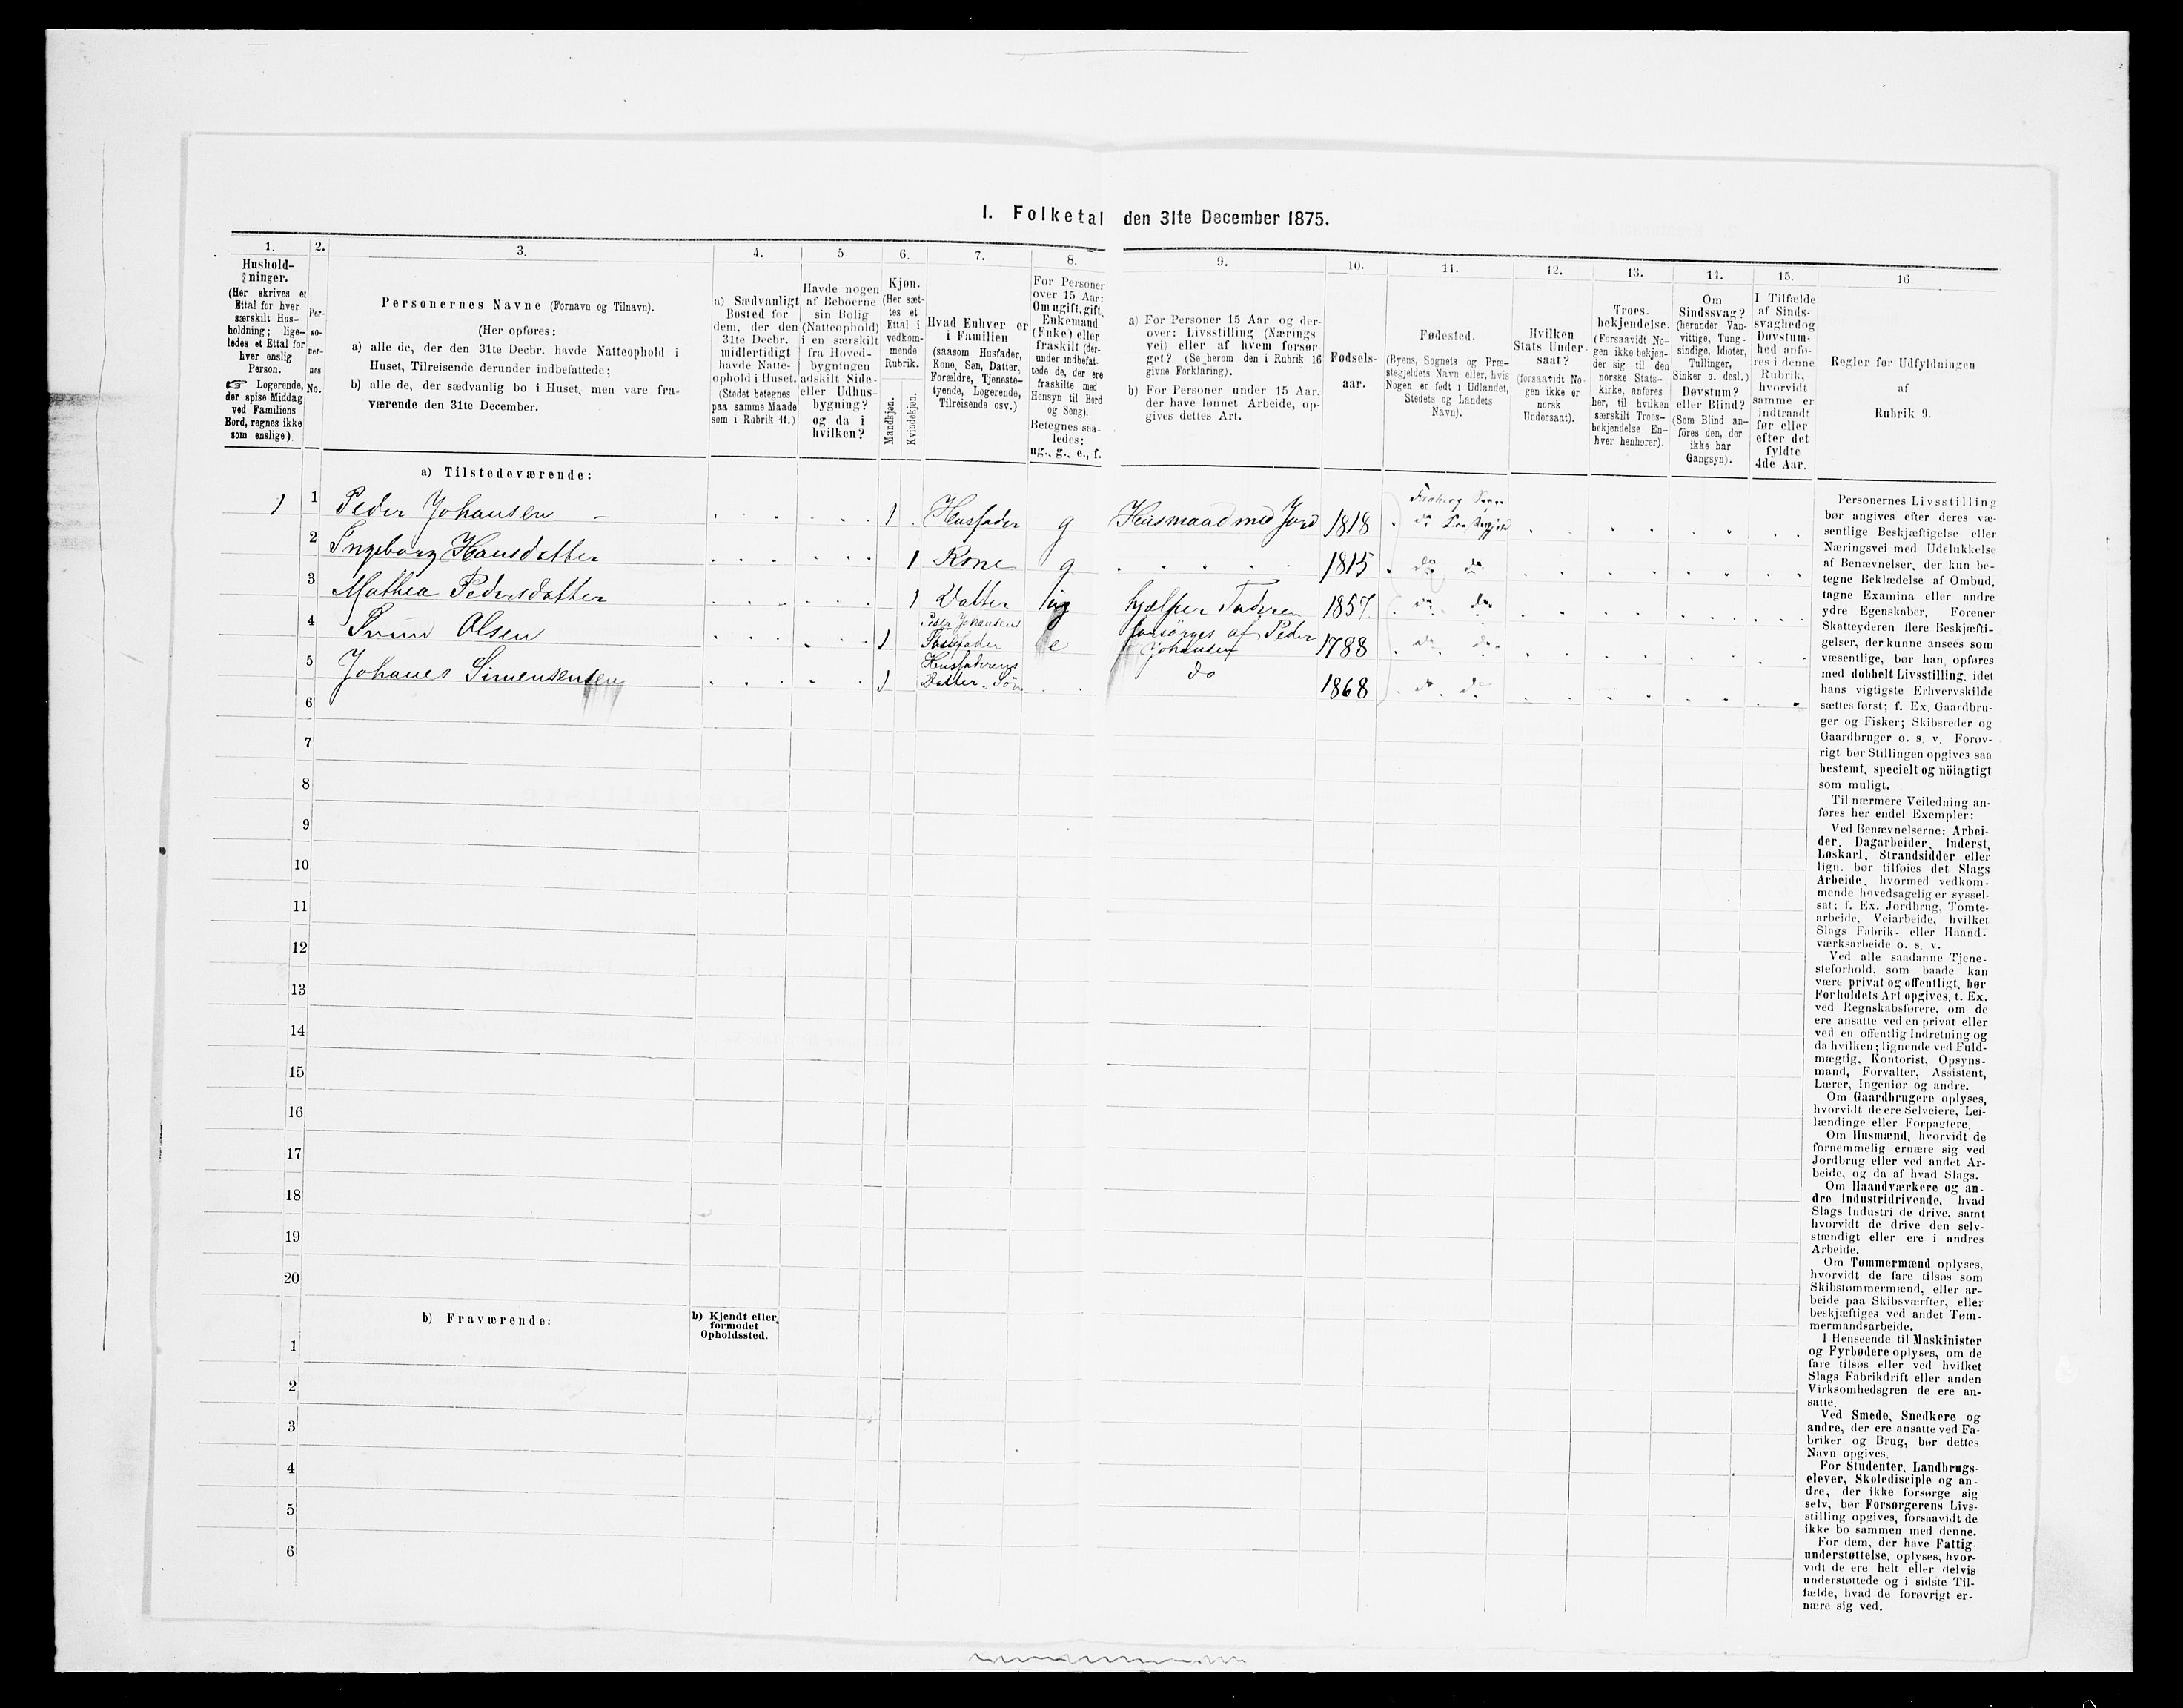 I. Folketal den 31te December 1875.
1.
Hushold-
ninger.
(Her skrives et
Ettal for hver
særskilt Hus-
holdning; lige-
ledes et Ettal for
hver enslig
Person.
☞ Logerende,
der spise Middag
ved Familiens
Bord, regnes ikke
som enslige).
2.
Per-
so-
ner-
nes
No.
3.
Personernes Navne (Fornavn og Tilnavn).
(Her opføres:
a) alle de, der den 31te Decbr. havde Natteophold i
Huset, Tilreisende derunder indbefattede;
b) alle de, der sædvanlig bo i Huset, men vare fra-
værende den 31te December.
4.
a) Sædvanligt
Bosted for
dem, der den
31te Decbr.
midlertidigt
havde Natte-
ophold i Huset.
(Stedet betegnes
paa samme Maade
som i Rubrik 11.)
5.
Havde nogen
af Beboerne
sin Bolig
(Natteophold)
i en særskilt
fra Hoved-
bygningen
adskilt Side-
eller Udhus-
bygning?
og da i
hvilken?
6.
Kjøn.
(Her sæt-
tes et
Ettal i
vedkom-
mende
Rubrik.
Mandkjøn.
Kvindekjøn.
7.
Hvad Enhver er
i Familien
(saasom Husfader,
Kone, Søn, Datter,
Forældre, Tjeneste-
tyende, Logerende,
Tilreisende osv.)
8.
For Personer
over 15 Aar:
Om ugift, gift,
Enkemand
(Enke) eller
fraskilt (der-
under indbefat-
tede de, der ere
fraskilte med
Hensyn til Bord
og Seng).
Betegnes saa-
ledes:
ug., g., e., f.
9.
a) For Personer 15 Aar og der-
over: Livsstilling (Nærings
vei) eller af hvem forsør-
get? (Se herom den i Rubrik 16
givne Forklaring).
b) For Personer under 15 Aar,
der have lønnet Arbeide, op-
gives dettes Art.
10.
Fødsels-
aar.
11.
Fødested.
(Byens, Sognets og Præ-
stegjeldets Navn eller, hvis
Nogen er født i Udlandet,
Stedets og Landets
Navn).
12.
Hvilken
Stats Under-
saat?
(forsaavidt No-
gen ikke er
norsk
Undersaat).
13.
Troes-
bekjendelse.
(Forsaavidt No-
gen ikke bekjen-
der sig til den
norske Stats-
kirke, anføres
her, til hvilken
særskilt Troes-
bekjendelse En-
hver henhører).
14.
Om
Sindssvag?
(herunder Van-
vittige, Tung-
sindige, Idioter,
Tullinger,
Sinker o. desl.)
Døvstum?
eller Blind?
(Som Blind an-
føres den, der
ikke har
Gangsyn).
15.
I Tilfælde
af Sinds-
svaghed og
Døvstum-
hed anfø-
res i denne
Rubrik,
hvorvidt
samme er
indtraadt
før eller
efter det
fyldte
4de Aar.
16
Regler for Udfyldningen
af
Rubrik 9.
a) Tilstedeværende:
1 1 Peder Johansen 1 Husfader g Husmand med Jord 1818 Faaberg Sogn
do
2 Ingeborg Hansdatter 1 Kone g 1815 do do
3 Mathea Pedersdatter 1 Datter ug hjælper Faderen 1857 do do
4 Olsen 1 Peder Johansens
e forsörges af Peder
Johansen 1788 do do
5 Johanes Simensen 1 Husfaderens
Datter Sön do 1868 do do
6
7
8
9
10
11
12
13
14
15
16
17
18
19
20
b) Fraværende:
b) Kjendt eller
formodet
Opholdssted.
1
2
3
4
5
6
Personernes Livsstilling
bør angives efter deres væ-
sentlige Beskjæftigelse eller
Næringsvei med Udelukkelse
af Benævnelser, der kun be-
tegne Beklædelse af Ombud,
tagne Examina eller andre
ydre Egenskaber. Forener
Skatteyderen flere Beskjæfti-
gelser, der kunne ansees som
væsentlige, bør han opføres
med dobbelt Livsstilling, idet
hans vigtigste Erhvervskilde
sættes først; f. Ex. Gaardbru-
ger og Fisker; Skibsreder og
Gaardbruger o. s. v. Forøv-
rigt bør Stillingen opgives saa
bestemt, specielt og nöiagtigt
som muligt.
Til nærmere Veiledning an-
føres her endel Exempler:
Ved Benævnelserne: Arbei-
der, Dagarbeider, Inderst,
Løskarl, Strandsidder eller
lign. bør tilføies det Slags
Arbeide, hvormed vedkom-
mende hovedsagelig er syssel-
sat; f. Ex. Jordbrug, Tomte-
arbeide, Veiarbeide, hvilket
Slags Fabrik- eller Haand-
værksarbeide o. s. v.
Ved alle saadanne Tjene-
steforhold, som baade kan
være privat og offentligt, bør
Forholdets Art opgives, t. Ex.
ved Regnskabsførere, om de
ere ansatte ved en privat eller
ved en offentlig Indretning og
da hvilken; lignende ved Fuld-
mægtig, Kontorist, Opsyns-
mand, Forvalter, Assistent,
Lærer, Ingeniør og andre.
Om Gaardbrugere oplyses,
hvorvidt de ere Selveiere, Lei-
lændinge eller Forpagtere.
Om Husmænd, hvorvidt de
fornemmelig ernære sig ved
Jordbrug eller ved andet Ar-
beide, og da af hvad Slags.
Om Haandværkere og an-
dre Industridrivende, hvad
Slags Industri de drive, samt
hvorvidt de drive den selv-
stændigt eller ere i andres
Arbeide.
Om Tømmermænd oplyses,
hvorvidt de fare tilsøs som
Skibstømmermænd, eller ar-
beide paa Skibsværfter, eller
beskjæftiges ved andet Tøm-
mermandsarbeide.
I Henseende til Maskinister
og Fyrbødere oplyses, om de
fare tilsøs eller ved hvilket
Slags Fabrikdrift eller anden
Virksomhedsgren de ere an-
satte.
Ved Smede, Snedkere og
andre, der ere ansatte ved Fa-
briker og Brug, bør dettes
Navn opgives.
For Studenter, Landbrugs-
elever, Skoledisciple og an-
dre, der ikke forsørge sig
selv, bør Forsørgerens Livs-
stilling opgives, forsaavidt de
ikke bo sammen med denne.
For dem, der have Fattig-
understøttelse, oplyses, hvor-
vidt de ere helt eller delvis
understøttede og i sidste Til-
fælde, hvad de forøvrigt er-
nære sig ved.